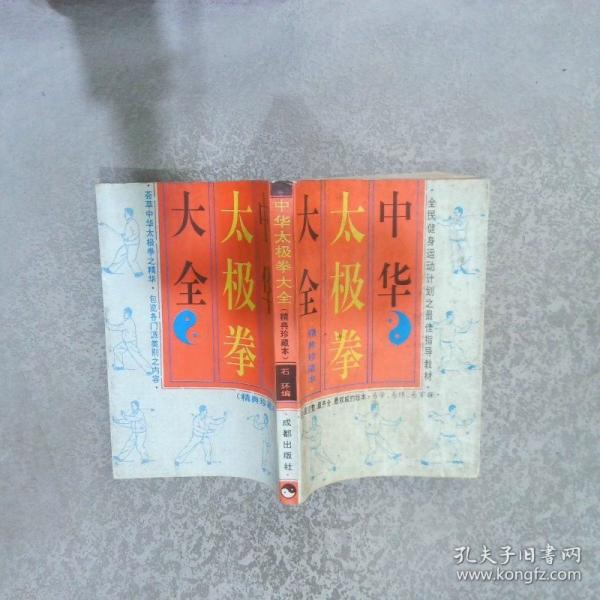 荟萃中华太极拳之精华·包览各门派类别之内容·
中华
太极拳
大全
(精典珍藏
中华太极拳大全
(精典珍藏本)
石 环编
·成都出版社·
中华
太极拳
大全
精典珍藏本
·全民健身运动计划之最佳指导教材·
最齐全、最权威的版本
孔夫子旧书网
www.kongfz.com